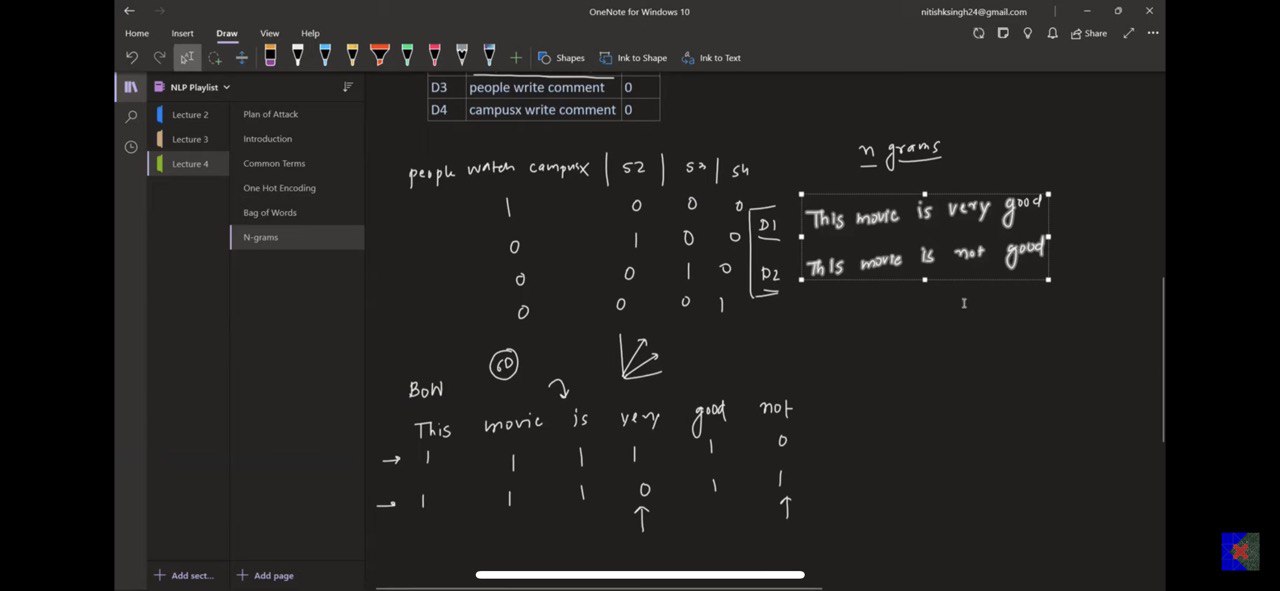 OneNote for Windows 10
nitishksingh24@gmail.com
Home Insert Draw View Help
Share
Shapes Ink to Shape Ink to Text
NLP Playlist
Lecture 2
Lecture 3
Lecture 4
Plan of Attack
Introduction
Common Terms
One Hot Encoding
Bag of Words
N-grams
D3 people write comment 0
D4 campusx write comment 0
n grams
people watch campusx | S2 | S3 | S4
1 0 0 0
0 1 0 0
0 0 1 0
0 0 0 1
D1 This movie is very good
D2 This movie is not good
6D
BoW
This movie is very good not
1 1 1 1 1 0
1 1 1 0 1 1
+ Add sect...
+ Add page